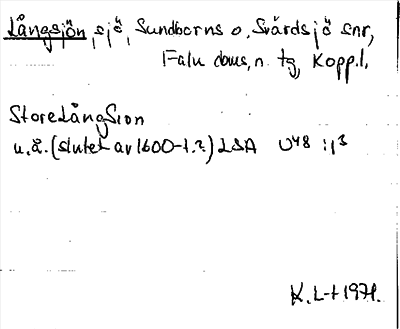 Långsjön, sjö, Sundborns o. Svärdsjö snr,
Falu doms. n. tg, Kopp. l.
Store Långsion
u. å. (slutet av 1600-t.?) LSA U48:1:3
K. L-t 1971.